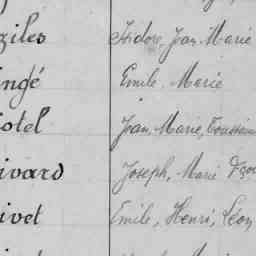 ziles Isidore, Jean Marie
ingé Emile Marie
otel Jean Marie, Toussain
ivard Joseph, Marie
ivet Emile, Henri, Léon